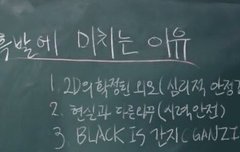 흑발에 미치는 이유
1. 2D의 확정된 외모 (심리적 안정
2. 현실과 다른 외모 (시력안전)
3. BLACK IS 간지 (GANZI